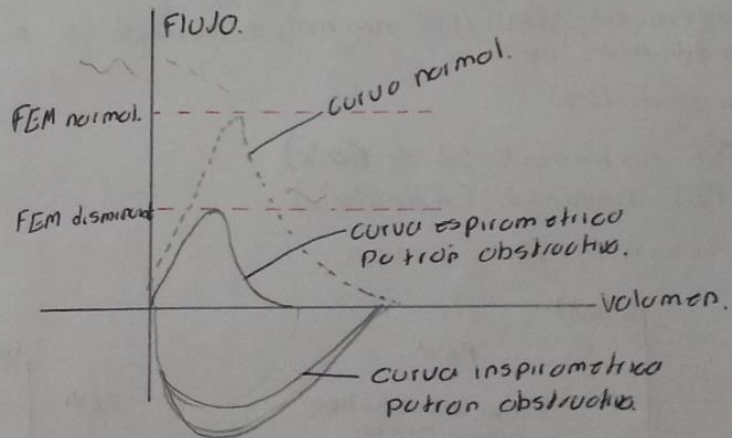 FLUJO.
curva normal.
FEM normal.
FEM disminuid
curva espirometrica
patron obstructivo.
volumen.
curva inspirometrica
patron obstructivo.